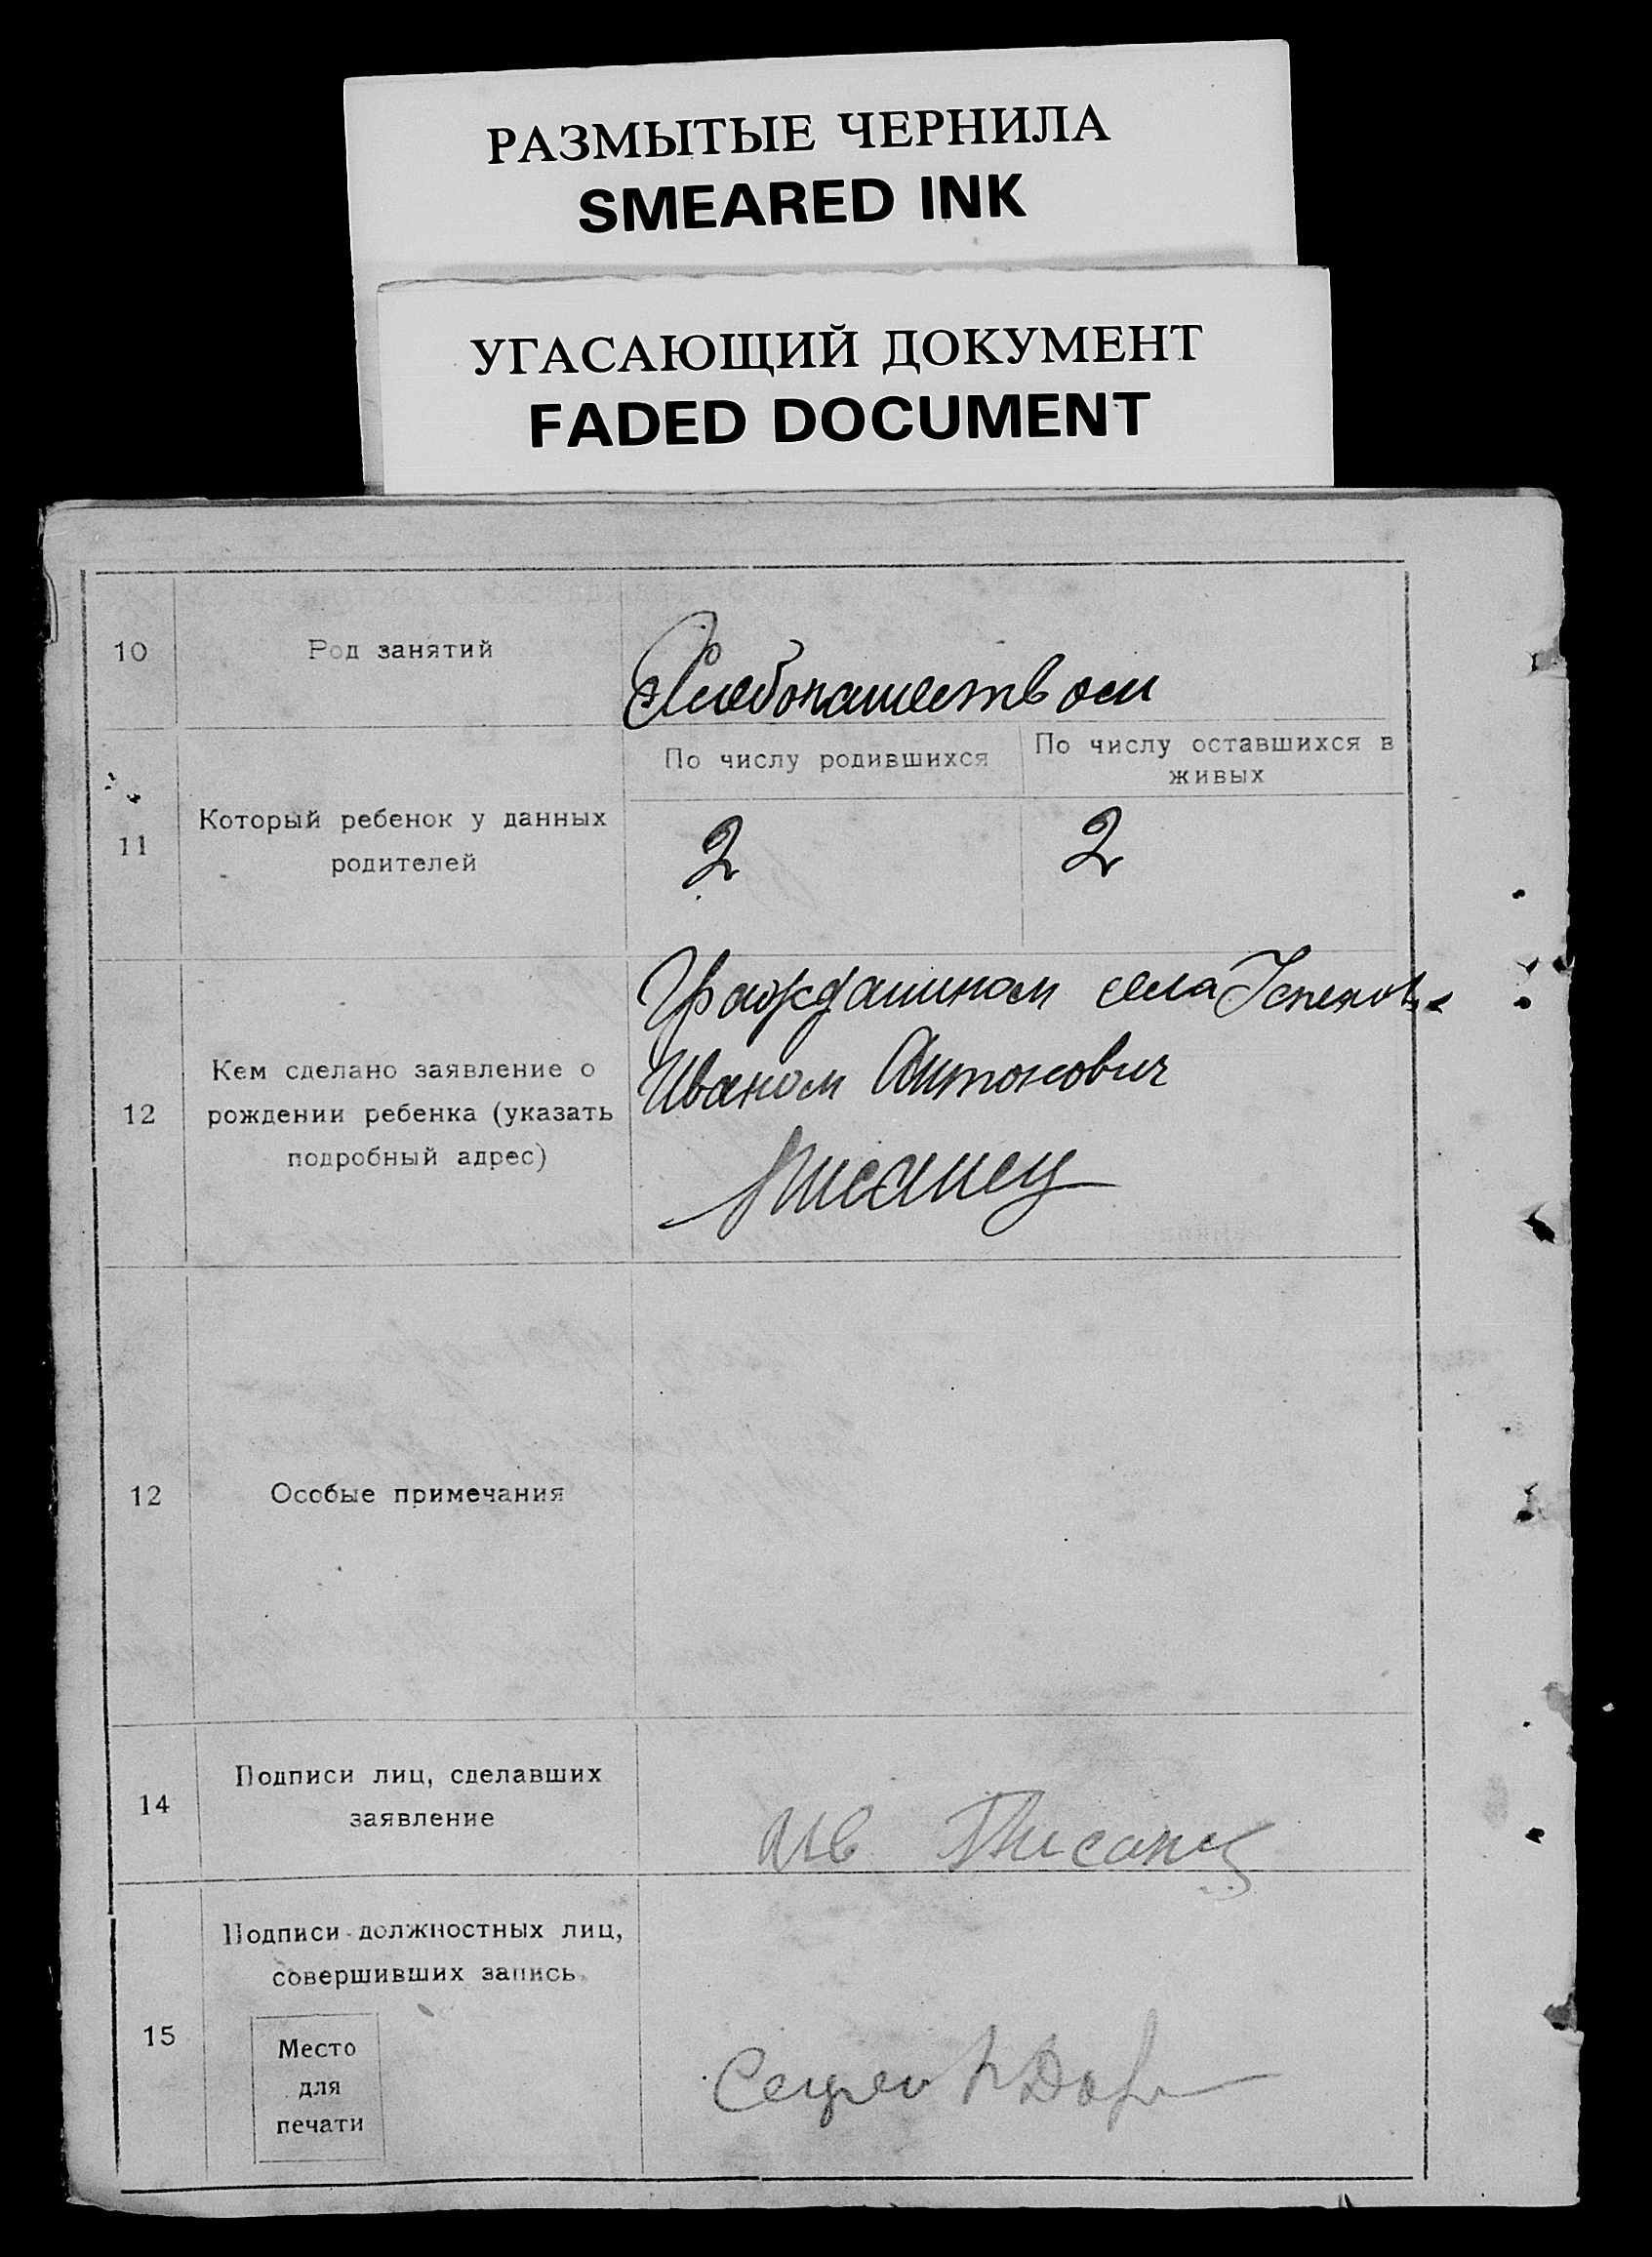 РАЗМЫТЫЕ ЧЕРНИЛА
SMEARED INK
УГАСАЮЩИЙ ДОКУМЕНТ
FADED DOCUMENT
10
Род занятий
Хлебопашеством
11
Который ребенок у данных
родителей
По числу родившихся
По числу оставшихся в
живых
2
2
12
Кем сделано заявление о
рождении ребенка (указать
подробный адрес)
Гражданином села
Иваном Антонович
Писанец
12
Особые примечания
14
Подписи лиц, сделавших
заявление
Ив Писанец
15
Подписи должностных лиц,
совершивших запись
Место
для
печати